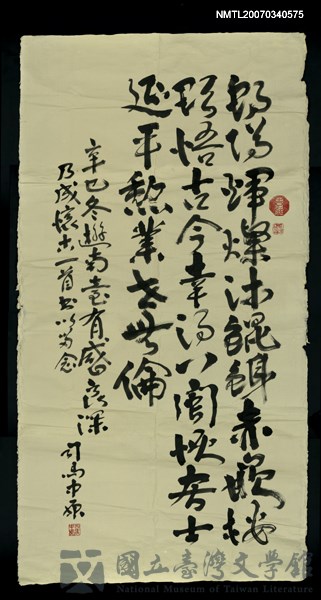 NMTL20070340575
朝陽輝燦沐鯤鯓赤嵌
悟古今幸得八閩
延平勳業世無倫
辛巳冬遊南臺有感良深
乃成懷古一首書以為念
司馬中原
國立臺灣文學館
National Museum of Taiwan Literature